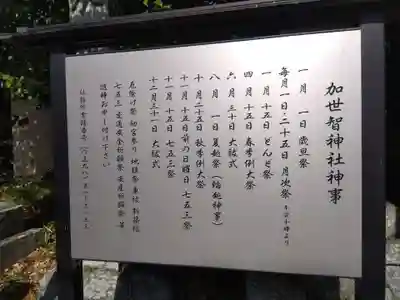 加世智神社神事
一月一日 歳旦祭
毎月一日・二十五日 月次祭 午前十時より
一月十五日 どんど祭
四月十五日 春季例大祭
六月三十日 大祓式
八月一日 夏越祭（輪越神事）
十月二十五日 秋季例大祭
十一月十五日前の日曜日 七五三祭
十一月十五日 七五三祭
十二月三十一日 大祓式
厄除け祭 初宮参り 地鎮祭 車祓 新築祭
七五三 交通安全祈願祭 安産祈願祭 等
随時お申し付け下さい